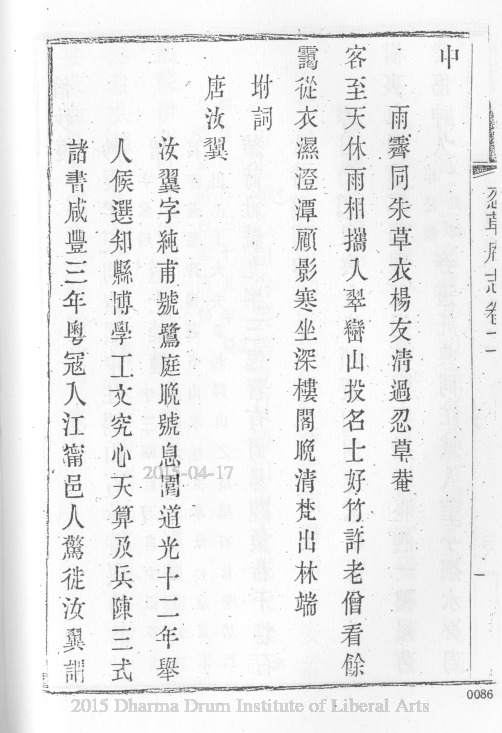 忍草庵志卷二
中
雨霽同朱草衣楊友清過忍草菴
客至天休雨相攜入翠巒山投名士好竹許老僧看餘
靄從衣濕澄潭顧影寒坐深樓閣晚清梵出林端
坿詞
唐汝翼
汝翼字純甫號鷺庭晚號息園道光十二年舉
人候選知縣博學工文究心天算及兵陳三式
諸書咸豐三年粵寇入江甯邑人驚徙汝翼謂
2015-04-17
0086
2015 Dharma Drum Institute of Liberal Arts